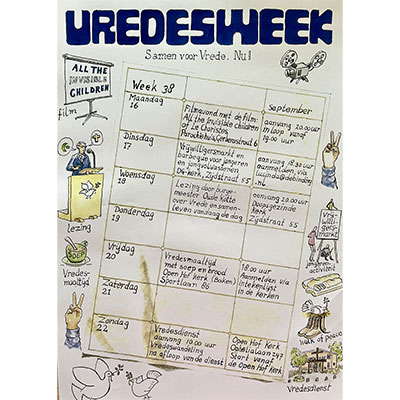 VREDESWEEK
Samen voor Vrede. Nu!
ALL THE
INVISIBLE
CHILDREN
film
Week 38
September
Maandag
16
Filmavond met de film:
All the invisible children
Parochiehuis, Gerdesstraat 6
aanvang 20.00 uur
inloop vanaf
19.00 uur
Dinsdag
17
Vrijwilligersmarkt en
barbeque voor jongeren
en jongvolwassenen
De kerk, Zijdstraat 55
aanvang 18.30 uur
aanmelden via
Woensdag
18
Lezing door burge-
meester Oude Kotte
over Vrede en samen-
leven vandaag de dag
aanvang 20.00 uur
Doopsgezinde
Kerk
Zijdstraat 55
Donderdag
19
lezing
Vrij-
willi-
gers-
markt
jongeren
activiteit
SOEP
Vredes-
maaltijd
Vrijdag
20
Vredesmaaltijd
met soep en brood
Open Hof Kerk (Baken)
Sportlaan 86
18.00 uur
Aanmelden via
Intekenlijst
in de kerken
Zaterdag
21
Walk of peace
Zondag
22
Vredesdienst
aanvang 10.00 uur
Vredeswandeling
na afloop van de dienst
Open Hof Kerk
Ophelialaan 247
Start vanaf
de Open Hof Kerk
Vredesdienst